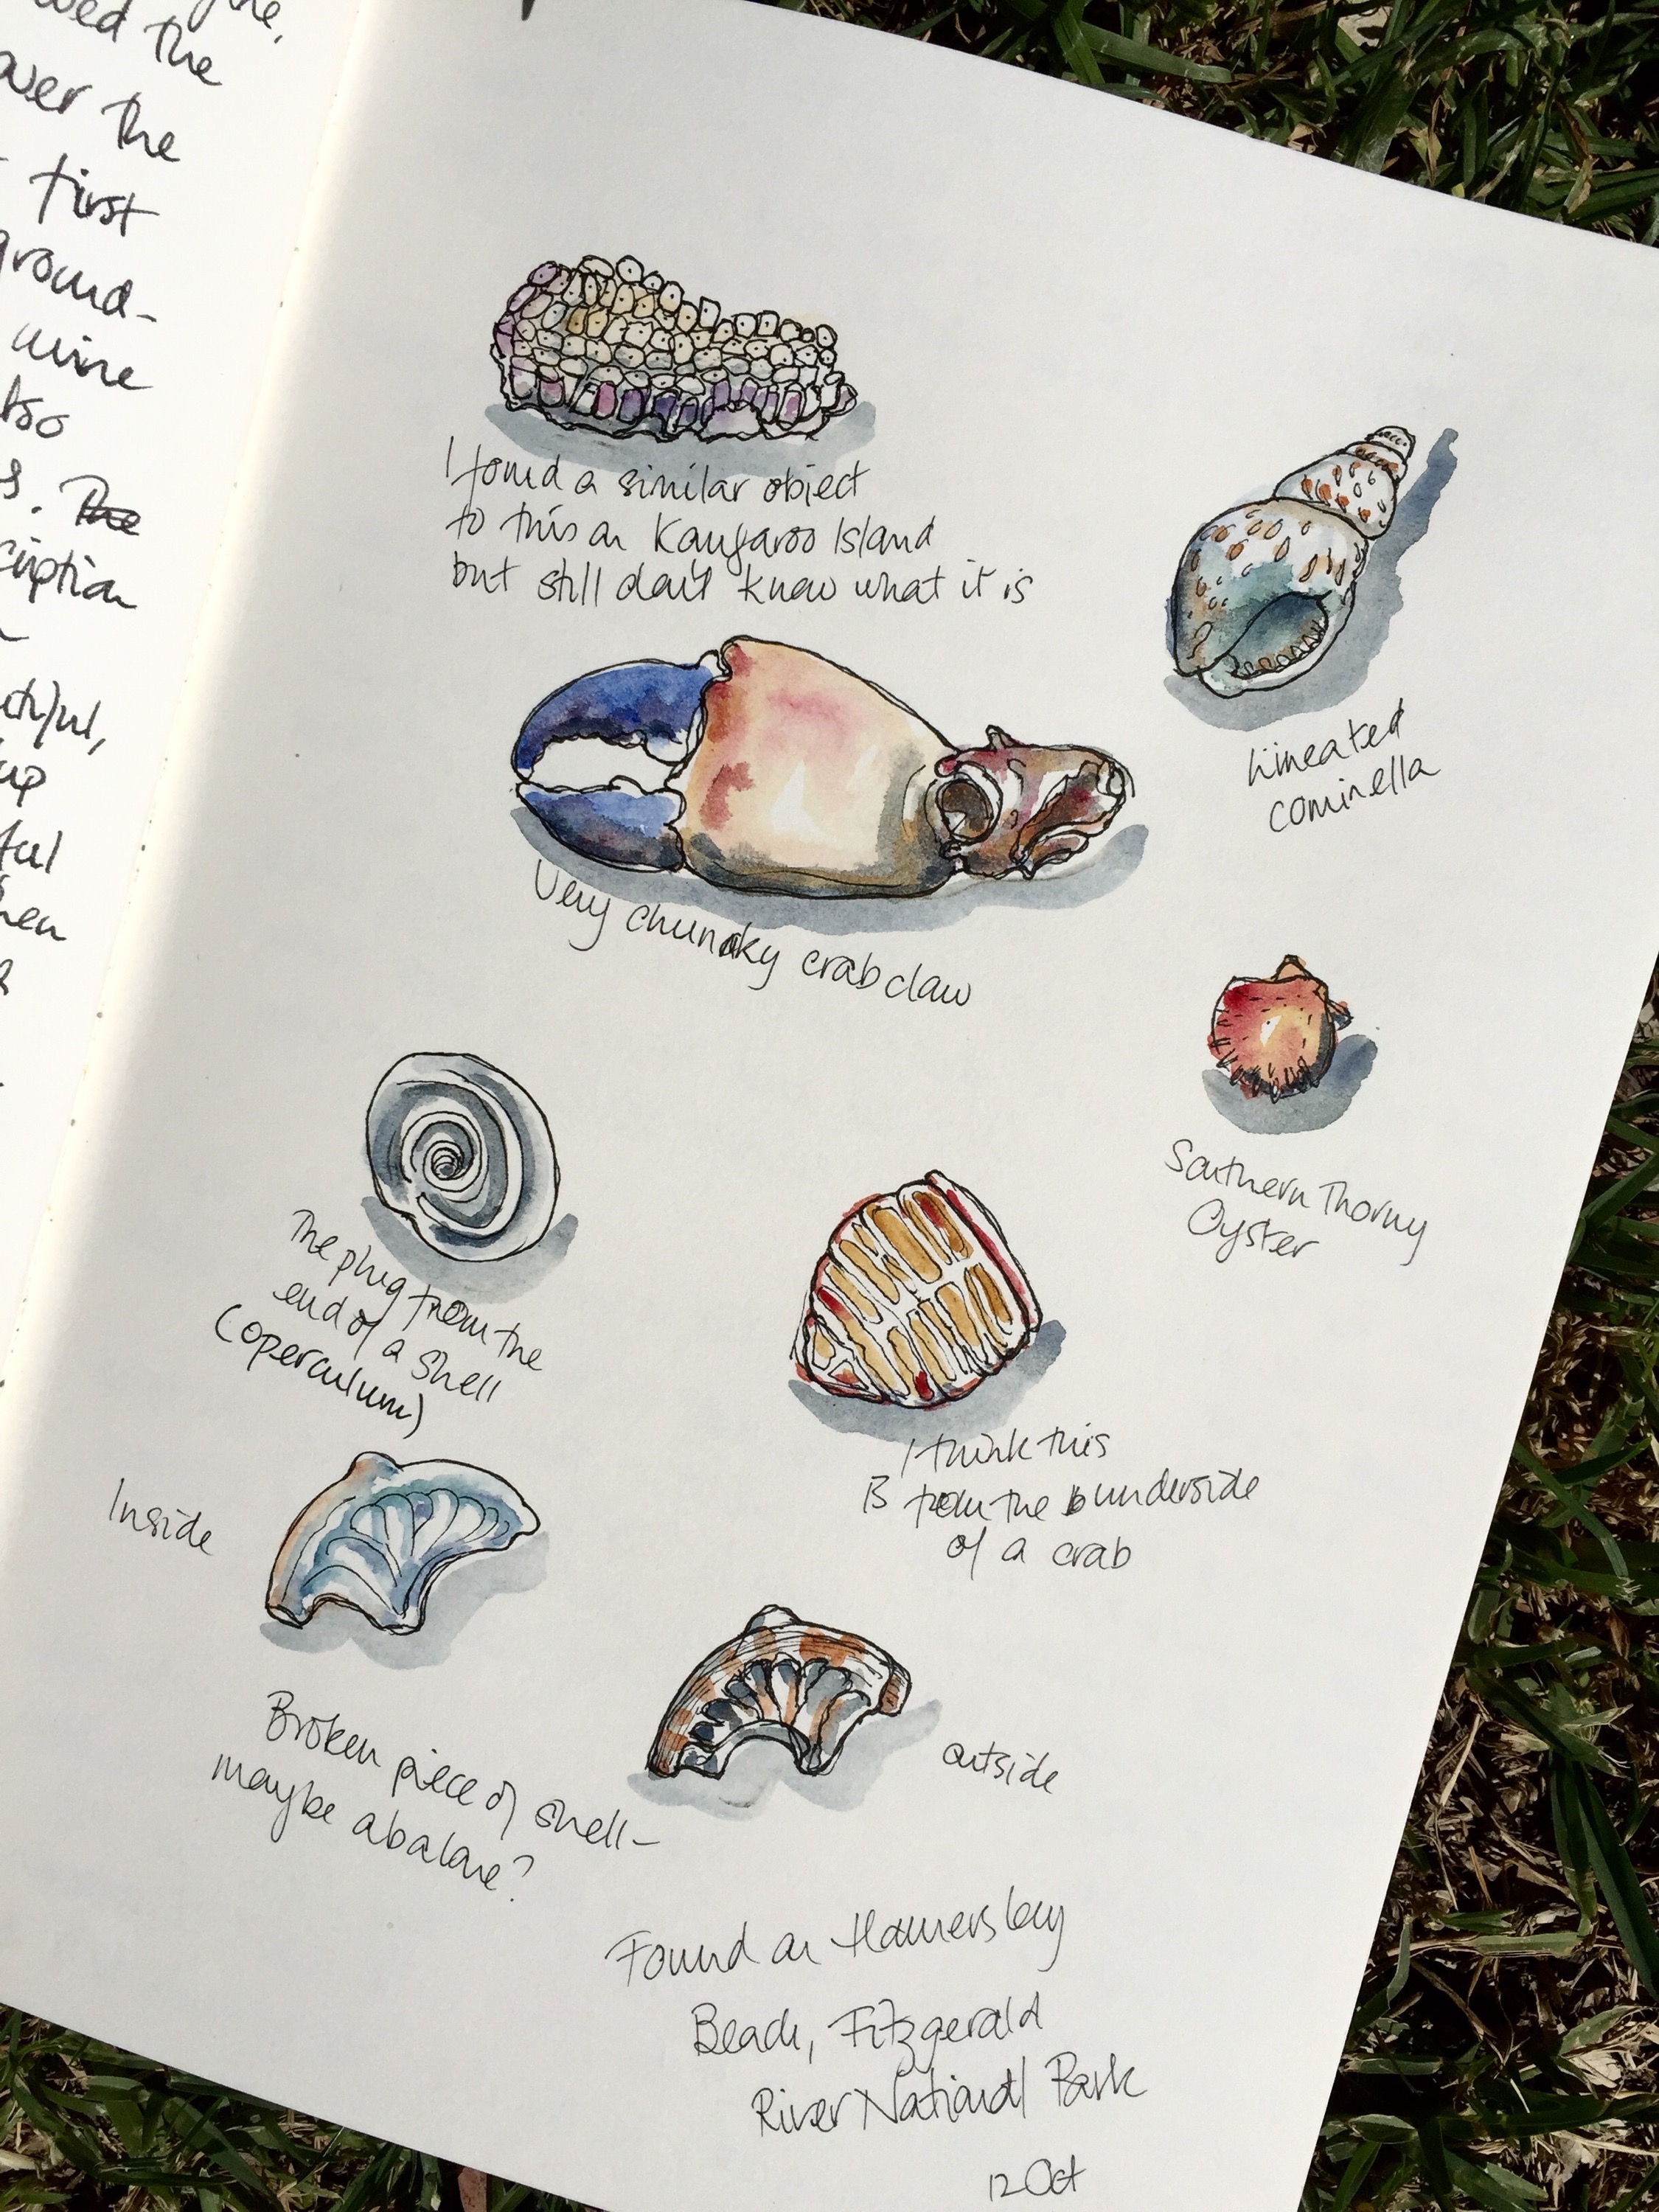 the,
the
over the
first
ground-
wine
also
The
utiful,
up
I found a similar object
to this on Kangaroo Island
but still don't know what it is
Lineated
cominella
Very chunky crab claw
Southern Thorny
Oyster
The plug from the
end of a shell
(operculum)
I think this
is from the underside
of a crab
Inside
outside
Broken piece of shell-
maybe abalone?
Found on Hamersley
Beach, Fitzgerald
River National Park
12 Oct